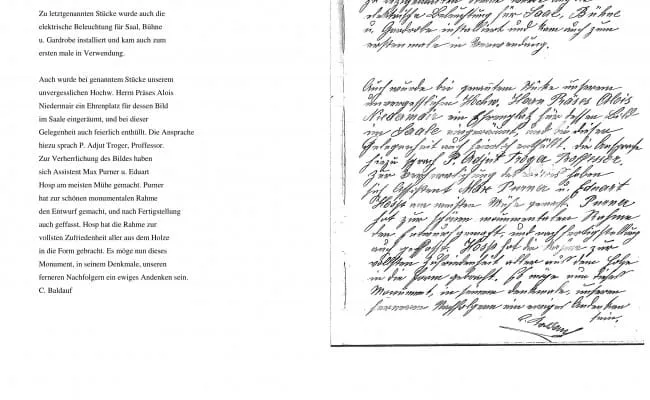 Zu letztgenannten Stücke wurde auch die
elektrische Beleuchtung für Saal, Bühne
u. Gardrobe installiert und kam auch zum
ersten male in Verwendung.
Auch wurde bei genanntem Stücke unserem
unvergesslichen Hochw. Herrn Präses Alois
Niedermair ein Ehrenplatz für dessen Bild
im Saale eingeräumt, und bei dieser
Gelegenheit auch feierlich enthüllt. Die Ansprache
hiezu sprach P. Adjut Troger, Proffessor.
Zur Verherrlichung des Bildes haben
sich Assistent Max Purner u. Eduart
Hosp am meisten Mühe gemacht. Purner
hat zur schönen monumentalen Rahme
den Entwurf gemacht, und nach Fertigstellung
auch gefasst. Hosp hat die Rahme zur
vollsten Zufriedenheit aller aus dem Holze
in die Form gebracht. Es möge nun dieses
Monument, in seinem Denkmale, unseren
ferneren Nachfolgern ein ewiges Andenken sein.
C. Baldauf
elektrische Beleuchtung für Saal, Bühne
u. Gardrobe installiert und kam auch zum
ersten male in Verwendung.
Auch wurde bei genanntem Stücke unserem
unvergesslichen Hochw. Herrn Präses Alois
Niedermair ein Ehrenplatz für dessen Bild
im Saale eingeräumt, und bei dieser
Gelegenheit auch feierlich enthüllt. Die Ansprache
hiezu sprach P. Adjut Troger Proffessor.
Zur Verherrlichung des Bildes haben
sich Assistent Max Purner u. Eduart
Hosp am meisten Mühe gemacht. Purner
hat zur schönen monumentalen Rahme
den Entwurf gemacht, und nach Fertigstellung
auch gefasst. Hosp hat die Rahme zur
vollsten Zufriedenheit aller aus dem Holze
in die Form gebracht. Es möge nun dieses
Monument, in seinem Denkmale, unseren
ferneren Nachfolgern ein ewiges Andenken
sein.
C. Baldauf